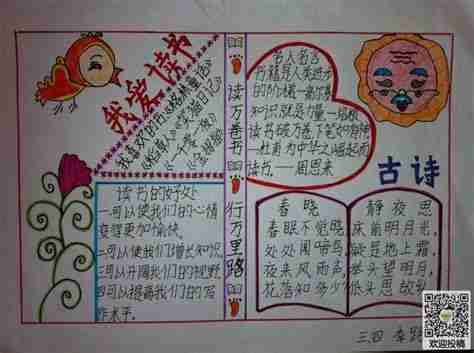 我爱读书
我喜欢的书：《格林童话》
《稻草人》《笑猫日记》
《一千零一夜》
读书的好处
一可以使我们的心情
变得更加愉快。
二可以使我们增长知识。
三可以开阔我们的视野
四可以提高我们的写
作水平。
读万卷书
行万里路
名人名言
书籍是人类进步
的阶梯—高尔基
知识就是力量—培根
读书破万卷下笔如有神
—杜甫 为中华之崛起而
读书。—周恩来
古诗
春晓
春眠不觉晓，
处处闻啼鸟。
夜来风雨声，
花落知多少？
静夜思
床前明月光，
疑是地上霜。
举头望明月，
低头思故
三四 李
欢迎投稿